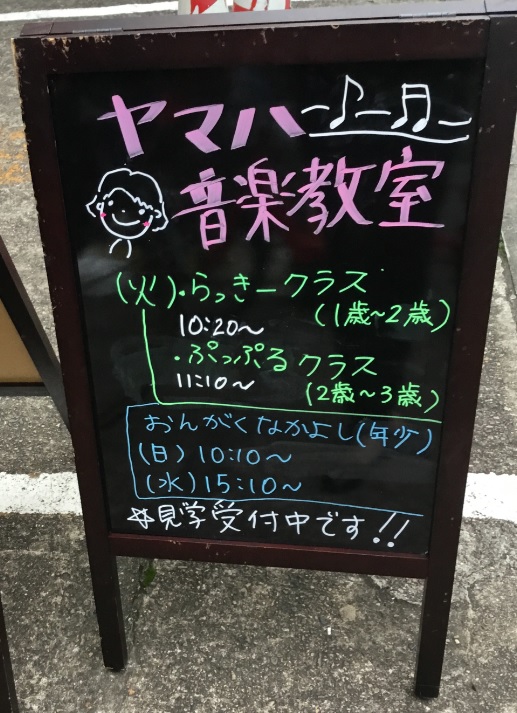 ヤマハ
音楽教室
(火)・らっきークラス
(1歳~2歳)
10:20~
・ぷっぷるクラス
11:10~
(2歳~3歳)
おんがくなかよし(年少)
(日) 10:10~
(水) 15:10~
☆見学受付中です!!